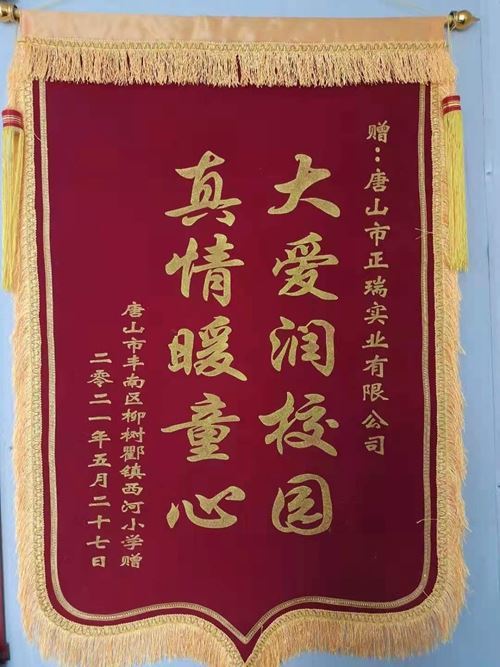 赠:唐山市正瑞实业有限公司
大爱润校园
真情暖童心
唐山市丰南区柳树酄镇西河小学赠
二零二一年五月二十七日